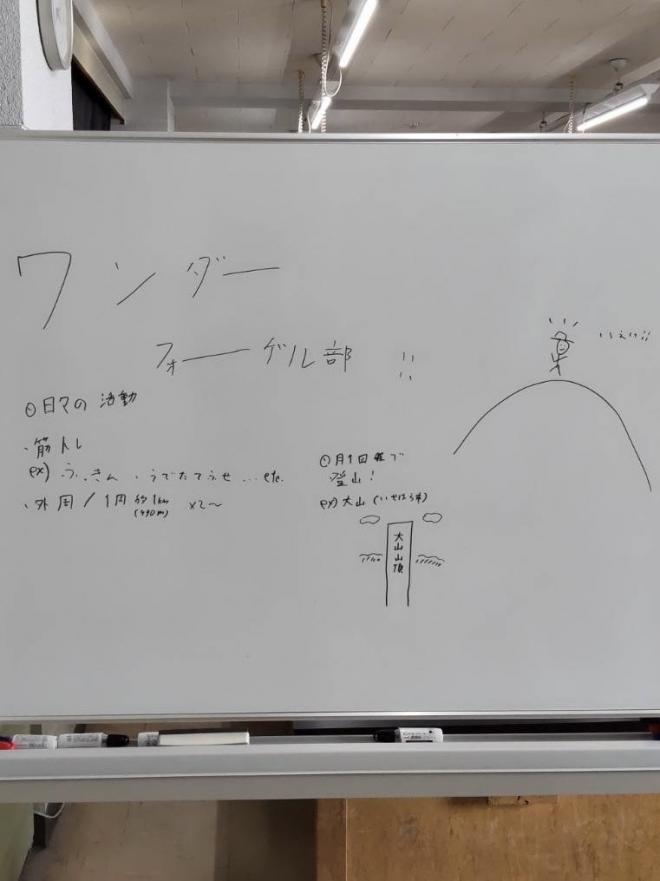 ワンダー
フォーゲル部 !!
◎日々の活動
・筋トレ
ex) ふっきん、うでたてふせ…etc.
・外周/1周約1km
(990m) ×2〜
◎月1回程で
登山!
ex) 大山(いせはら市)
大山山頂
いぇい!!